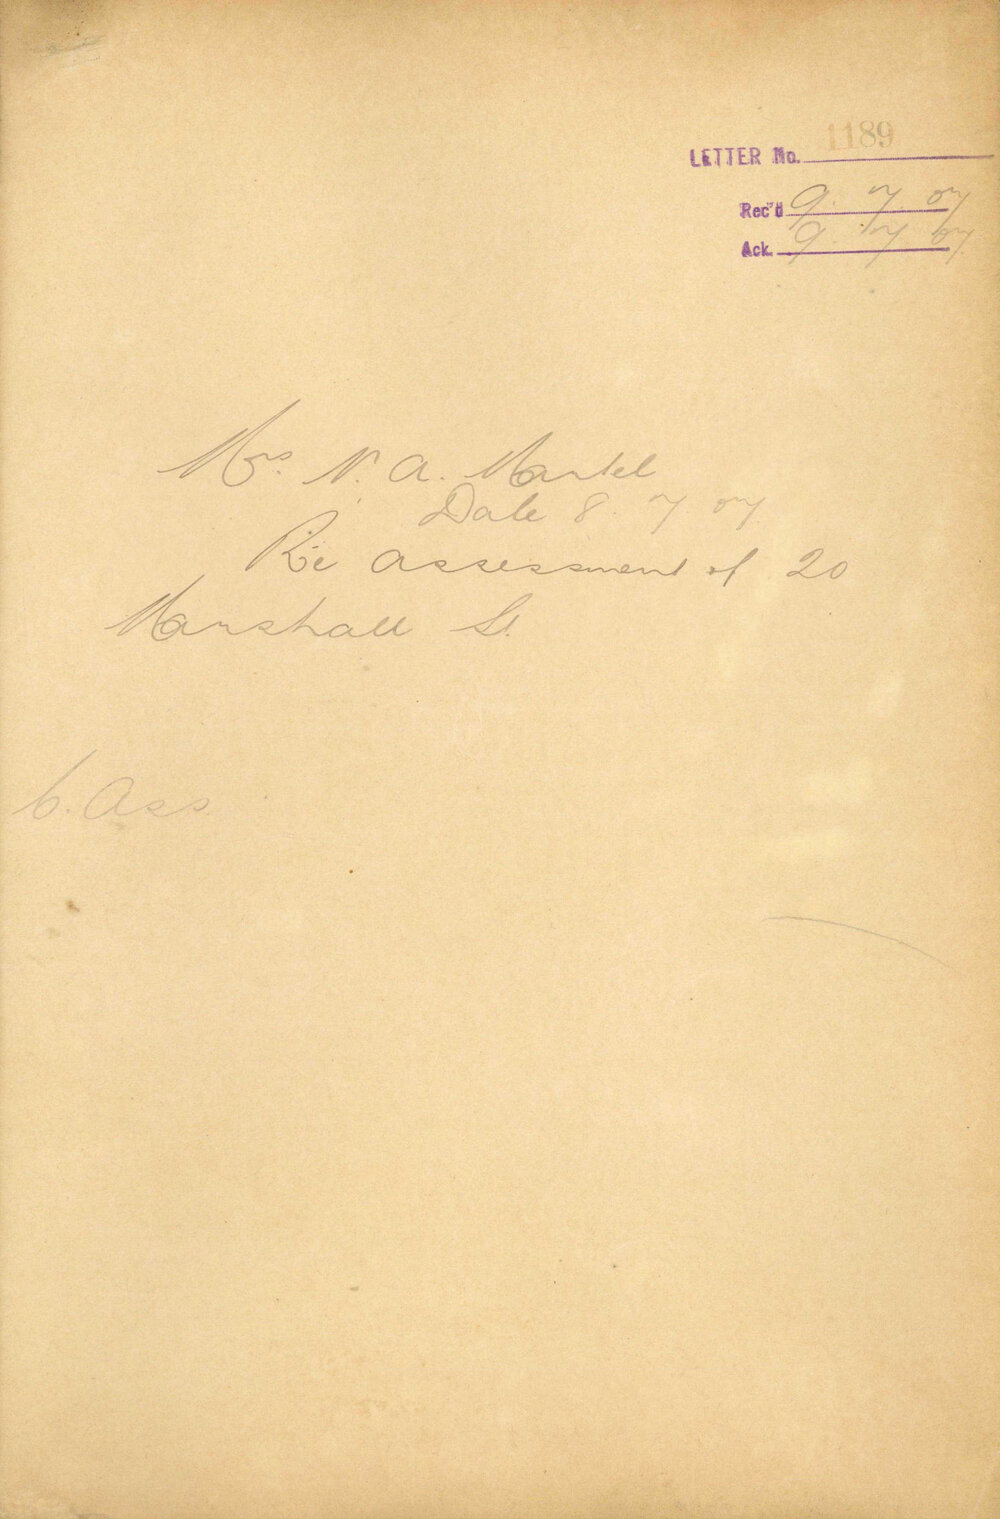 LETTER No. 1189
Rec'd 9. 7. 07
Ack. 9. 7. 07.
Mrs. N. A. Martel
Date 8. 7. 07.
Re assessment of 20
Marshall St.
C. Ass.